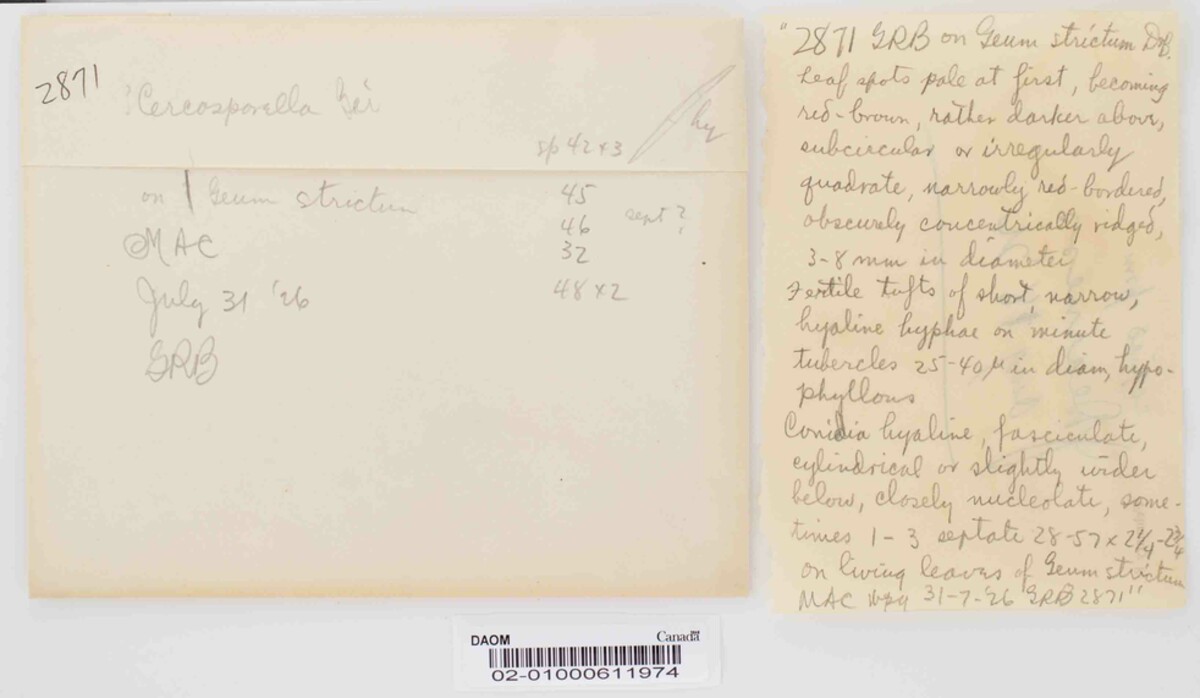 2871
Cercosporella
hy
sp 42 x 3
on Geum strictum
45
46 sept?
MAC
32
July 31 '26
48 x 2
GRB
"2871 GRB on Geum strictum
Leaf spots pale at first, becoming
red-brown, rather darker above,
subcircular or irregularly
quadrate, narrowly red-bordered,
obscurely concentrically ridged,
3-8 mm in diameter
Fertile tufts of short, narrow,
hyaline hyphae on minute
tubercles 25-40 µ in diam, hypo-
phyllous
Conidia hyaline, fasciculate,
cylindrical or slightly wider
below, closely nucleolate, some-
times 1-3 septate 28-57 x 2¼-2¾
on living leaves of Geum strictum
MAC Wpg 31-7-26 GRB 2871"
DAOM Canada
02-01000611974